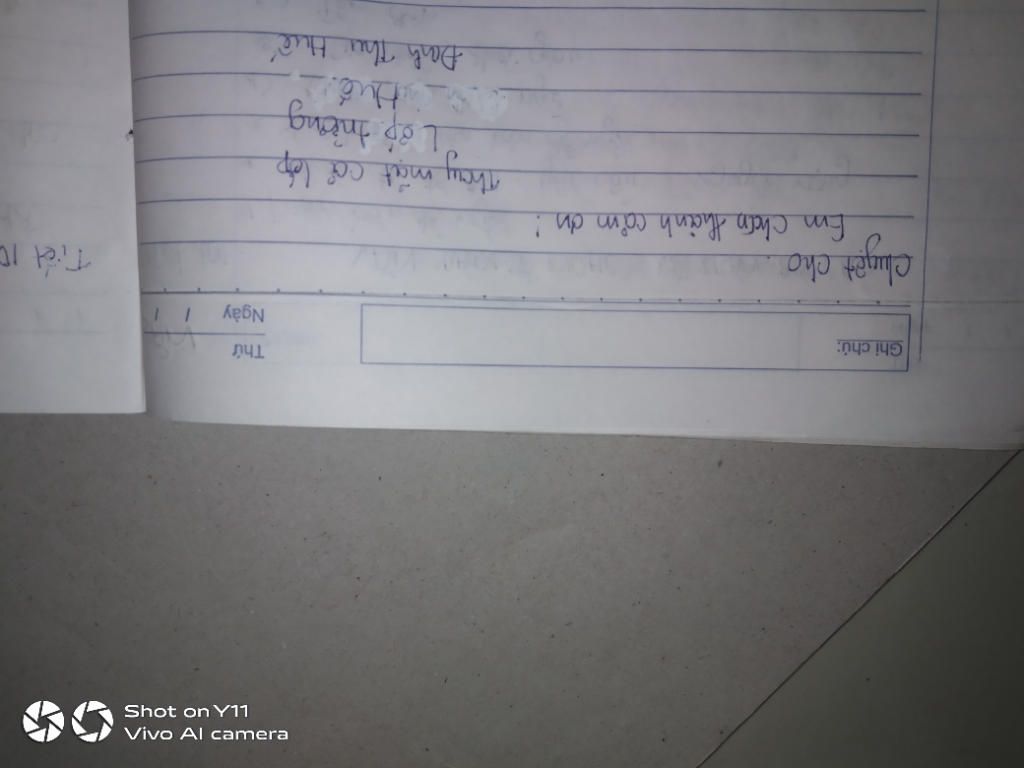 Ghi chú:
Thứ
Ngày / /
chuyệt cho.
Em chân thành cảm ơn!
Thay mặt cả lớp
Lớp trưởng
Thuế
Danh Thu Thuế
Tiết 10
Shot on Y11
Vivo AI camera